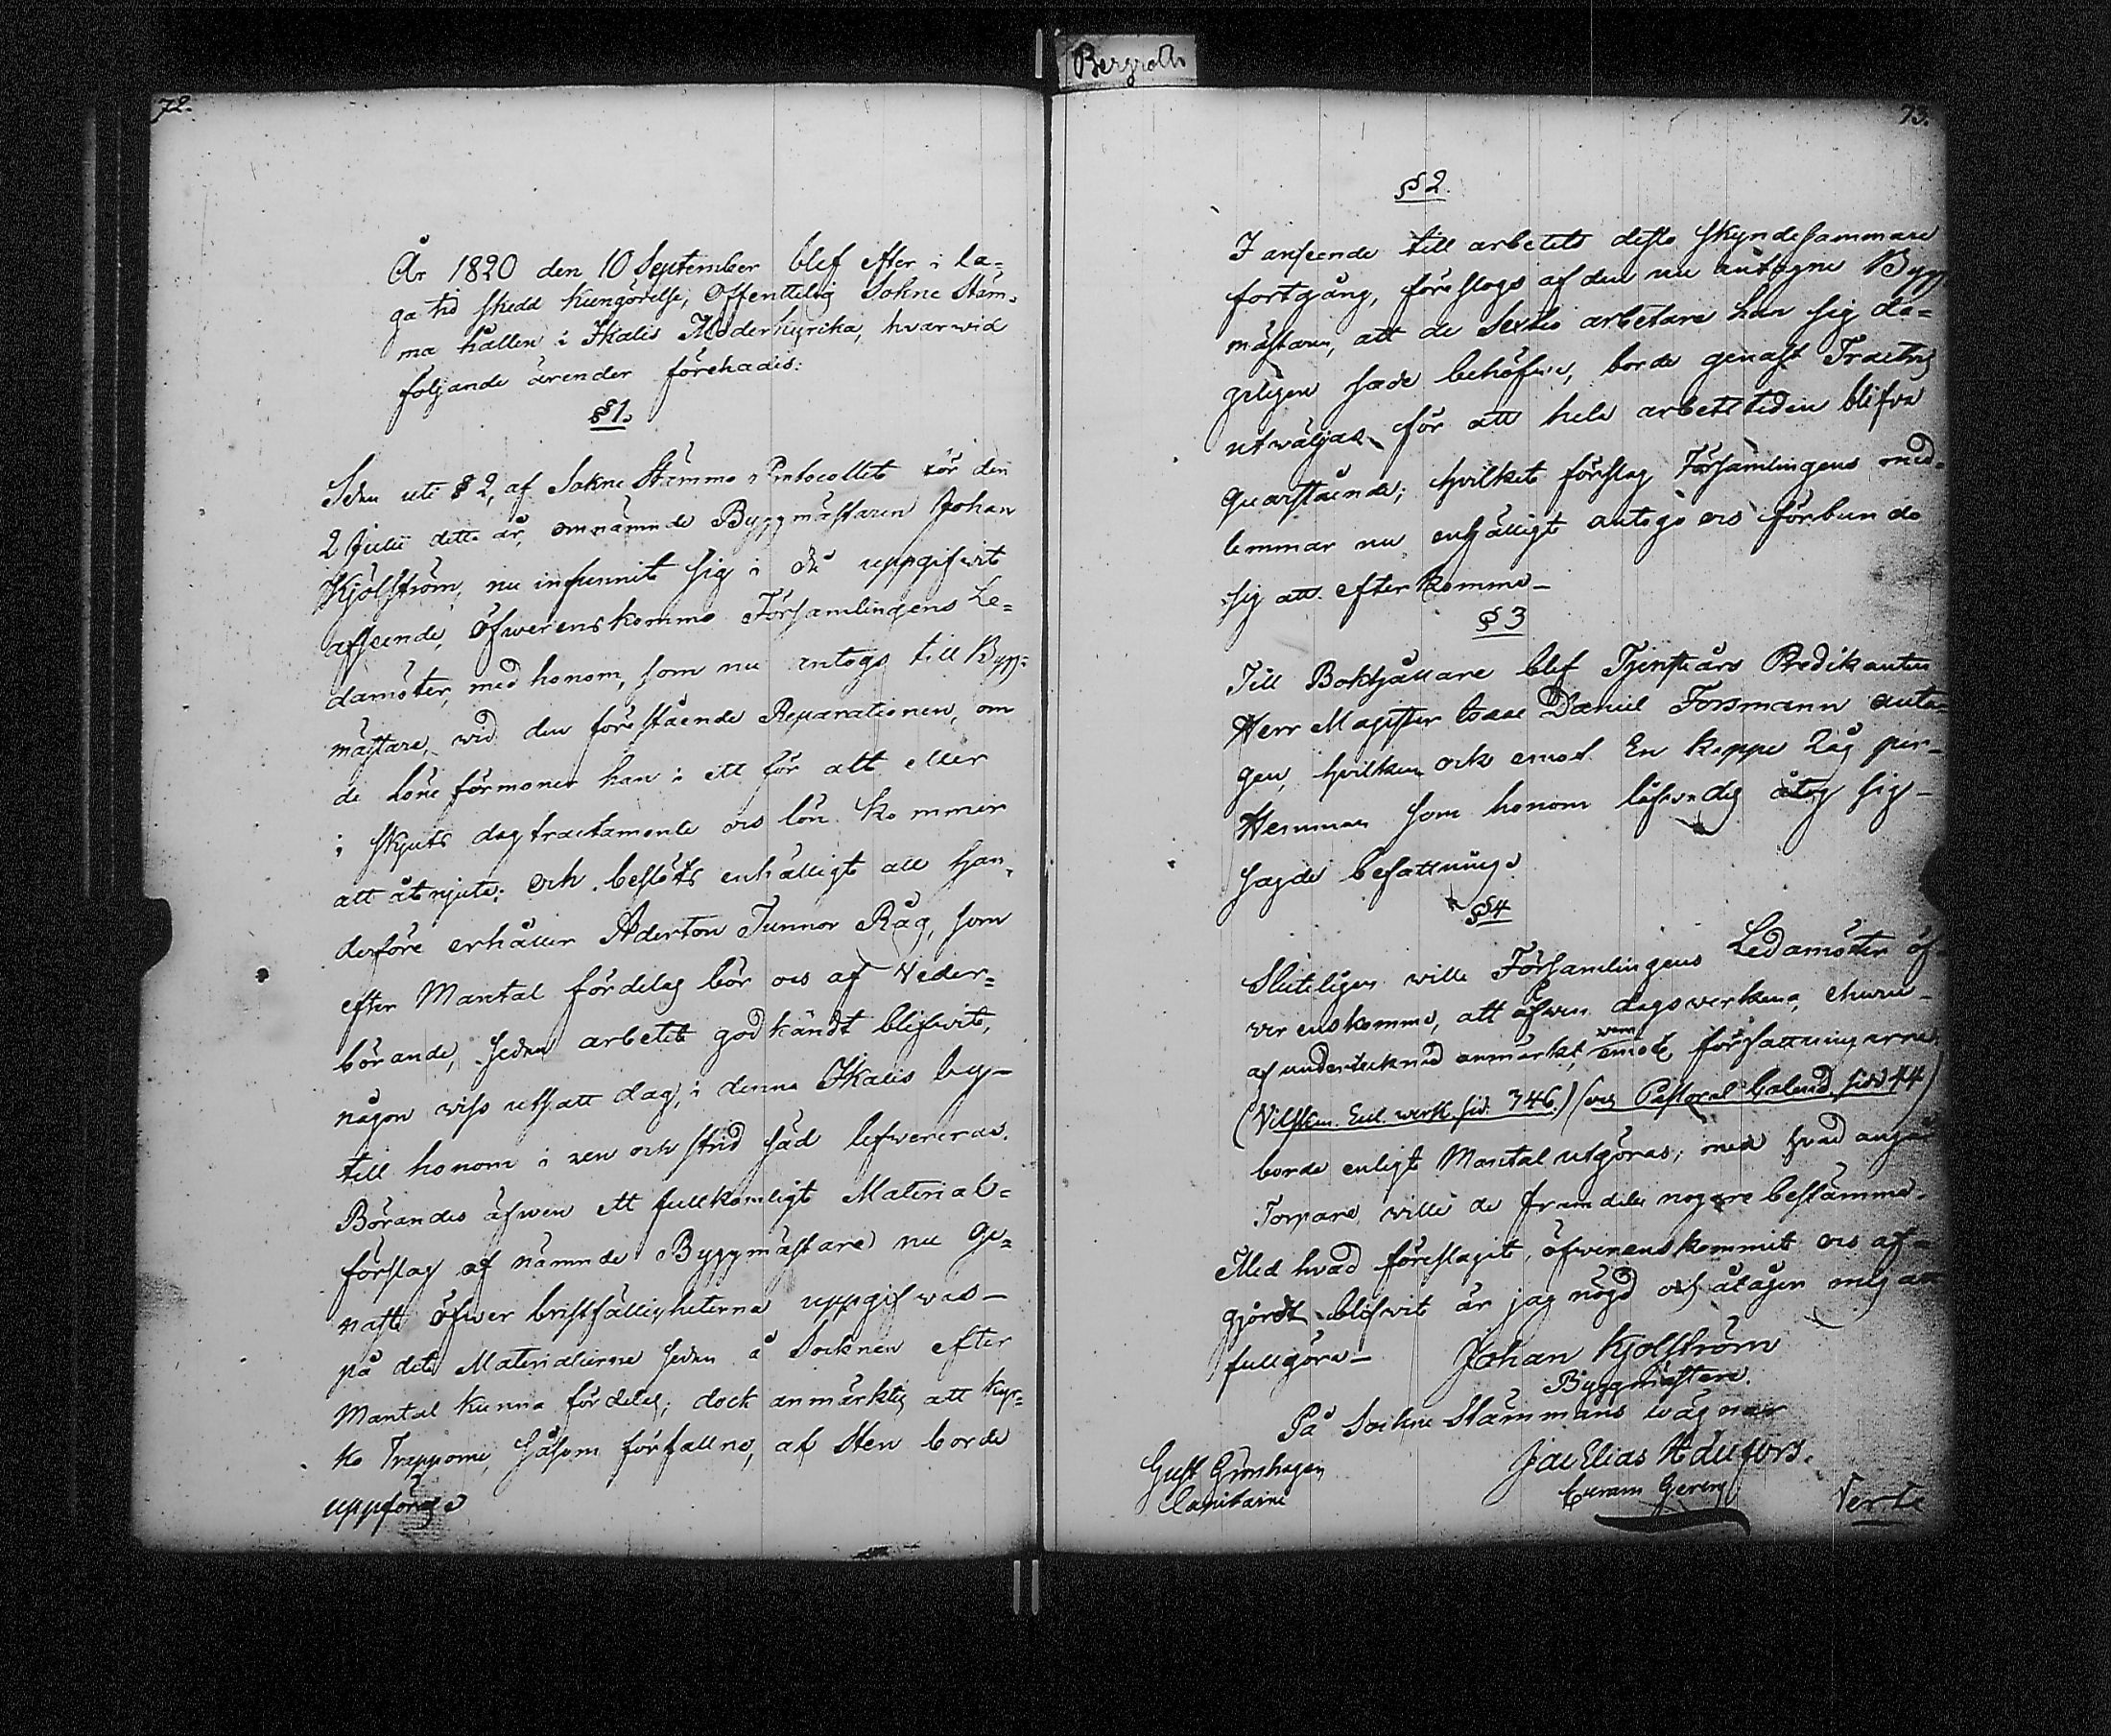 Bergroth
72.
År 1820 den 10 September blef efter i la-
ga tid skedd kungörelse, Offentelig Sokne Stäm-
ma hållen i Ikalis Moderkyrka, hvarwid
följande ärender förehades:
§ 1.
Seden uti § 2, af Sokne Stämmo Protocollet för den
2 Julii dette år, omnämnde Byggmästaren Johan
Kjölström, nu infunnit sig i då uppgifwit
afseende, öfwerenskommo Församlingens Le-
damöter, med honom, som nu antogs till Bygg-
mästare, wid den förestående Reparationen, om
de löne förmoner han i ett för allt eller
i skjuts dagtractamente och lön kommer
att åtnjuta: och beslöts enhälligt att han,
derföre erhåller Aderton Tunnor Råg, som
efter Mantal fördelas bör och af Veder-
börande, sedan arbetet godkändt blifwit,
någon wiss utsatt dag, i denna Ikalis by-
till honom i ren och strid säd lefwereras.
Börandes äfwen ett fullkomligt Material-
förslag af nämnde Byggmästare nu ge-
nast öfwer bristfälligheterna uppgifwas-
på det Materialierne sedan å Socknen efter
Mantal kunna fördelas; dock anmärktes att kyr-
ko Trapporne, såsom förfallne, af Sten borde
uppföras
73.
§ 2.
I anseende till arbetets desto skyndesammare
fortgång, föreslogs af den nu antagne Bygg
mästaren, att de Sextio arbetare han sig da-
geligen sade behöfwa, borde genast Tractvis
utwäljas för att hela arbetstiden blifva
quarstående; hvilket förslag Församlingens med-
lemmar nu enhälligt antogo och förbundo
sig att efterkomma-
§ 3
Till Bokhållare blef Tjenstårs Predikanten
Herr Magister Isaac Daniel Forsmann anta-
gen, hvilken ock emot En kappe Råg per-
Hemman som honom lofvades åtog sig-
sagde befattning.
§ 4
Sluteligen wille Församlingens Ledamöter öf-
verenskomma, att äfwen dagswerkena, ehuru-
af undertecknad anmärkt, wara
emot författningarne
(Vilskm. Eccl. werk. sid. 746.) (och Pastoral Calend. sid 44)
borde enligt Mantal utgöras; men hvad angår
Torpare wille de framdeles nogare bestämma.
Med hvad föreslagit, öfwerenskommit och af-
gjordt blifwit är jag nögd och åtager mig att
fullgöra- Johan Kjölström
Byggmästare.
På Sockne Stämmans wägnar
Gust Grönhagen
Capitaine
Jac Elias Adufors.
Curam Gerens
Verte